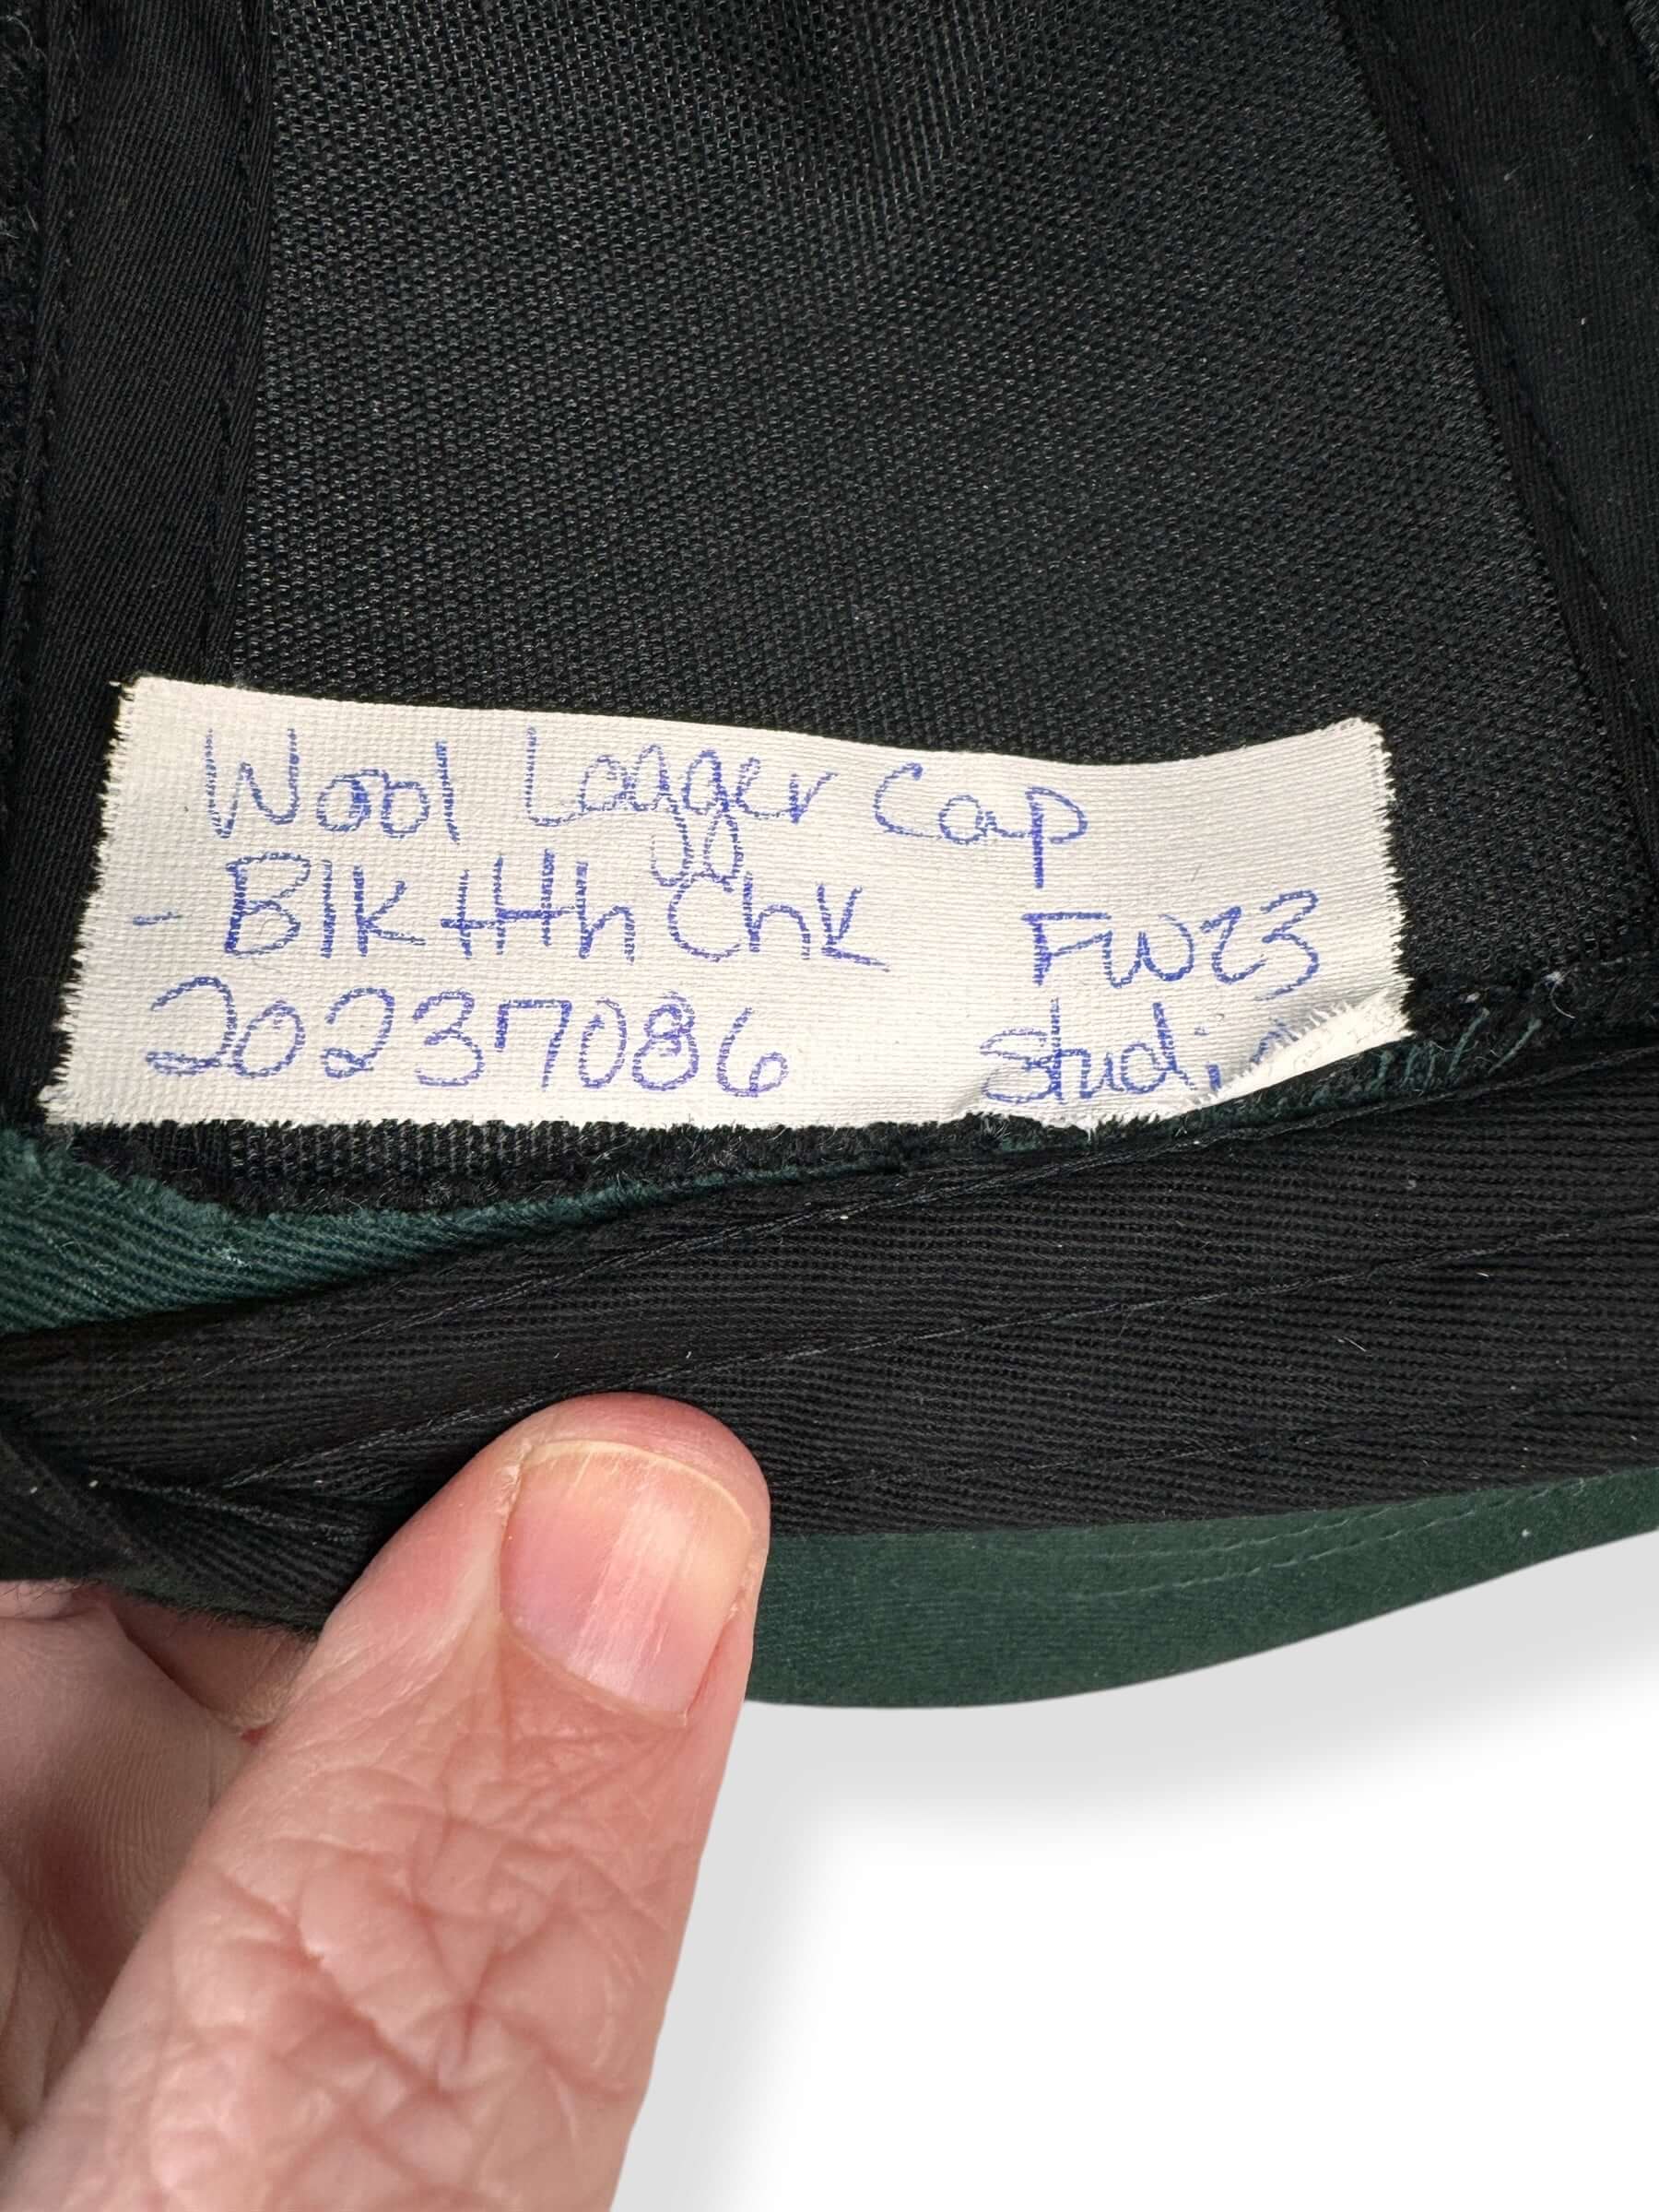 Wool Logger Cap
- Blk Hth Chk FW23
20237086 Studio